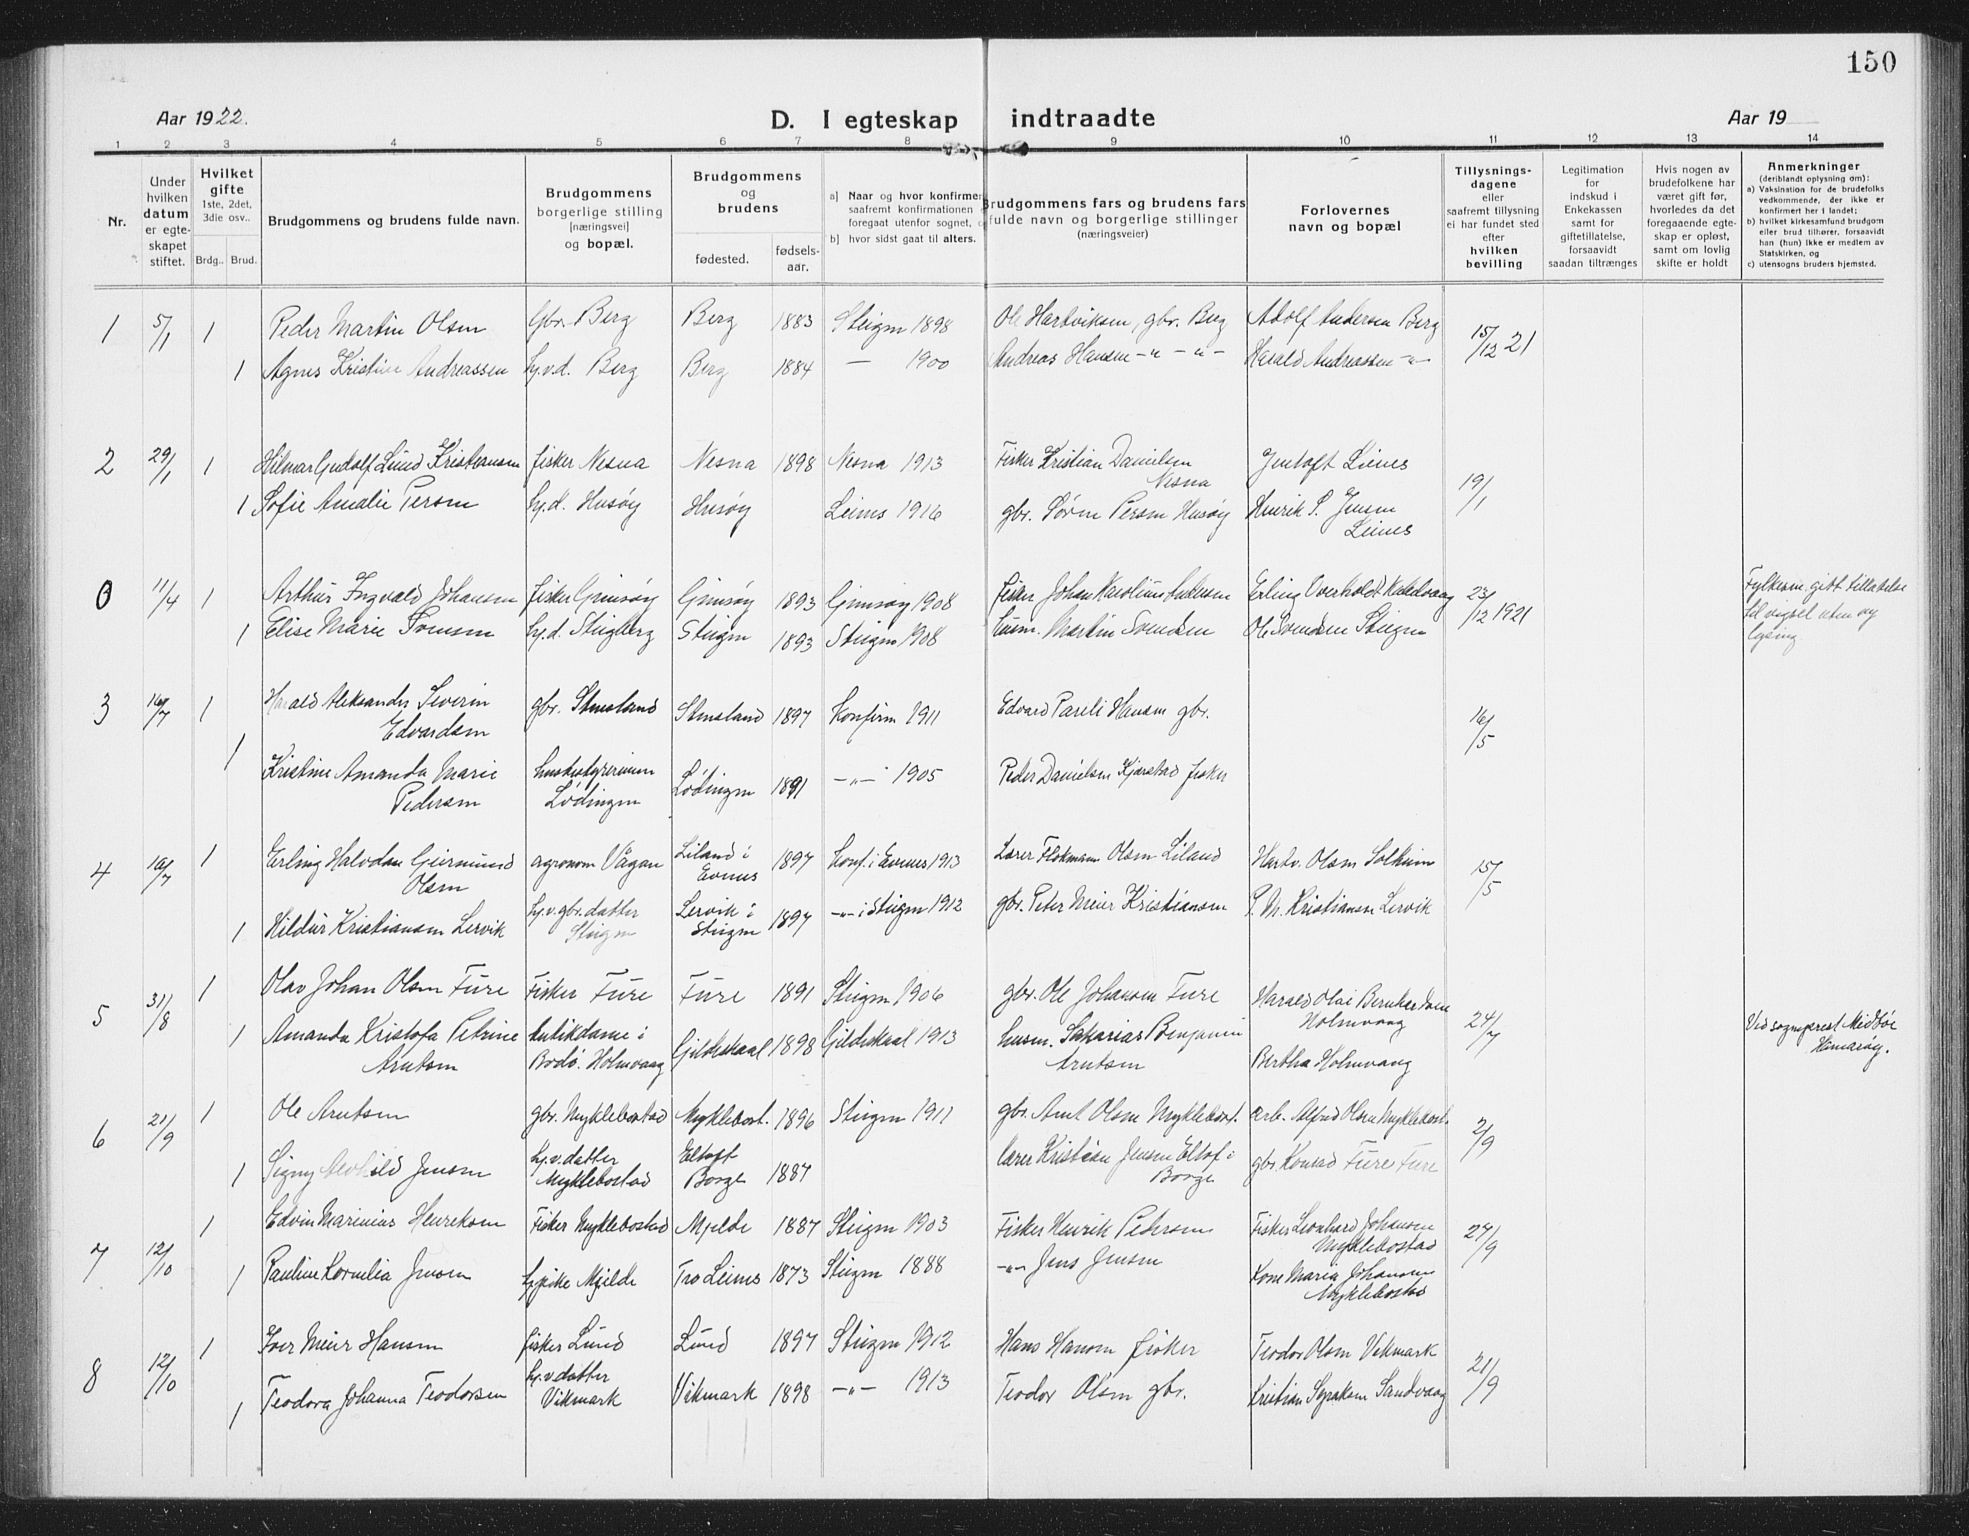 150
Aar 1922.
D. I egteskap indtraadte
Aar 19
1 2 3 4 5 6 7 8 9 10 11 12 13 14
Nr.
Under
hvilken
datum
er egte-
skapet
stiftet.
Hvilket
gifte
1ste, 2det,
3die osv..
Brdg.. Brud.
Brudgommens og brudens fulde navn.
Brudgommens
borgerlige stilling
[næringsvei]
og bopæl.
Brudgommens
og
brudens
fødested.
fødsels-
aar.
a] Naar og hvor konfirme
saafremt konfirmationen
foregaat utenfor sognet, o
b] hvor sidst gaat til alters.
Brudgommens fars og brudens fars
fulde navn og borgerlige stillinger
(næringsveier)
Forlovernes
navn og bopæl
Tillysnings-
dagene
eller
saafremt tillysning
ei har fundet sted
efter
hvilken
bevilling
Legitimation
for
indskud i
Enkekassen
samt for
giftetillatelse,
forsaavidt
saadan tiltrænges
Hvis nogen av
brudefolkene har
været gift før,
hvorledes da det
foregaaende egte-
skap er opløst,
samt om lovlig
skifte er holdt
Anmerkninger
(deriblandt oplysning om):
a) Vaksination for de brudefolks
vedkommende, der ikke er
konfirmert her i landet;
b) hvilket kirkesamfund brudgom
eller brud tilhører, forsaavidt
han (hun) ikke er medlem av
Statskirken, og
c) utensogns bruders hjemsted.
1 5/1 1 Peder Martin Olsen Gbr. Berg Berg 1883 Steigen 1898 Ole Hartviksen, gbr. Berg Adolf Andersen Berg 15/12 21
1 Agnes Kristine Andreassen hj.v.d. Berg Berg 1884 — 1900 Andreas Hansen -"- -"- Harald Andreassen -"-
2 29/1 1 Hilmar Gudolf Lund Kristiansen fisker Nesna Nesna 1898 Nesna 1913 Fisker Kristian Danielsen Nesna Jentoft Leines 19/1
1 Sofie Amalie Persen hj.d. Husøy Husøy Leines 1916 gbr. Søren Persen Husøy Henrik P. Jensen Leines
0 11/4 1 Arthur Ingvald Johansen fisker Gimsøy Gimsøy 1893 Gimsøy 1908 fisker Johan Karolius Andersen Erling Overholdt Kalldvaag 23/12 1921 Fylkesm. gitt tillatelse
1 Elise Marie Svensen hj.d. Steigberg Steigen 1893 Steigen 1908 husm. Martin Svendsen Ole Svendsen Steigen til vigsel uten ny
lysing
3 16/7 1 Harald Aleksander Severin
Edvardsen gbr. Stensland Stensland 1897 Konfirm 1911 Edvard Pareli Hansen gbr. 16/5
1 Kristine Amanda Marie
Pedersen husbestyrerinnen
Lødingen Lødingen 1891 -"- 1905 Peder Danielsen Kjærstad fisker
4 16/7 1 Erling Halvdan Geirmund
Olsen agronom Vågan Liland i
Evenes 1897 Konf. i Evenes 1913 Lærer Flokmann Olsen Liland Hartv. Olsen Solheim 15/5
1 Hildur Kristiansen Lervik hj.v. gbr. datter
Steigen Lervik i
Steigen 1897 -"- i Steigen 1912 gbr. Peter Meier Kristiansen P. M. Kristiansen Lervik
5 31/8 1 Olav Johan Olsen Fure Fisker Fure Fure 1891 Steigen 1906 gbr. Ole Johansen Fure Harald Olai Bernhardsen
Holmvaag 24/7 Ved sogneprest Midbøe
Hamarøy.
1 Amanda Kristofa Petrine
Arntsen butikdame i
Bodø. Holmvaag Gildeskaal 1898 Gildeskaal 1913 husm. Sakarias Benjamin
Arntsen Bertha Holmvaag
6 21/9 1 Ole Arntsen gbr. Myklebostad Myklebost. 1896 Steigen 1911 gbr. Arnt Olsen Myklebost. arb. Alfred Olsen Myklebost. 2/9
1 Signy Jensen hj.v. datter
Myklebostad Eltoft
Borge 1887 lærer Kristian Jensen Eltof i
Borge gbr Konrad Fure Fure
7 12/10 1 Edvin Marinius Henriksen Fisker Myklebostad Mjelde 1887 Steigen 1903 Fisker Henrik Pedersen Fisker Leonhard Johansen
Myklebostad 24/9
1 Pauline Kornelia Jensen hj.pike Mjelde Tro Leines 1873 Steigen 1888 -"- Jens Jensen Kone Maria Johansen
Myklebostad
8 12/10 1 Iver Meier Hansen fisker Lund Lund 1897 Steigen 1912 Hans Hansen fisker Teodor Olsen Vikmark 21/9
1 Teodora Johanna Teodorsen hj.v. datter
Vikmark Vikmark 1898 -"- 1913 Teodor Olsen gbr. Kristian Sandvaag